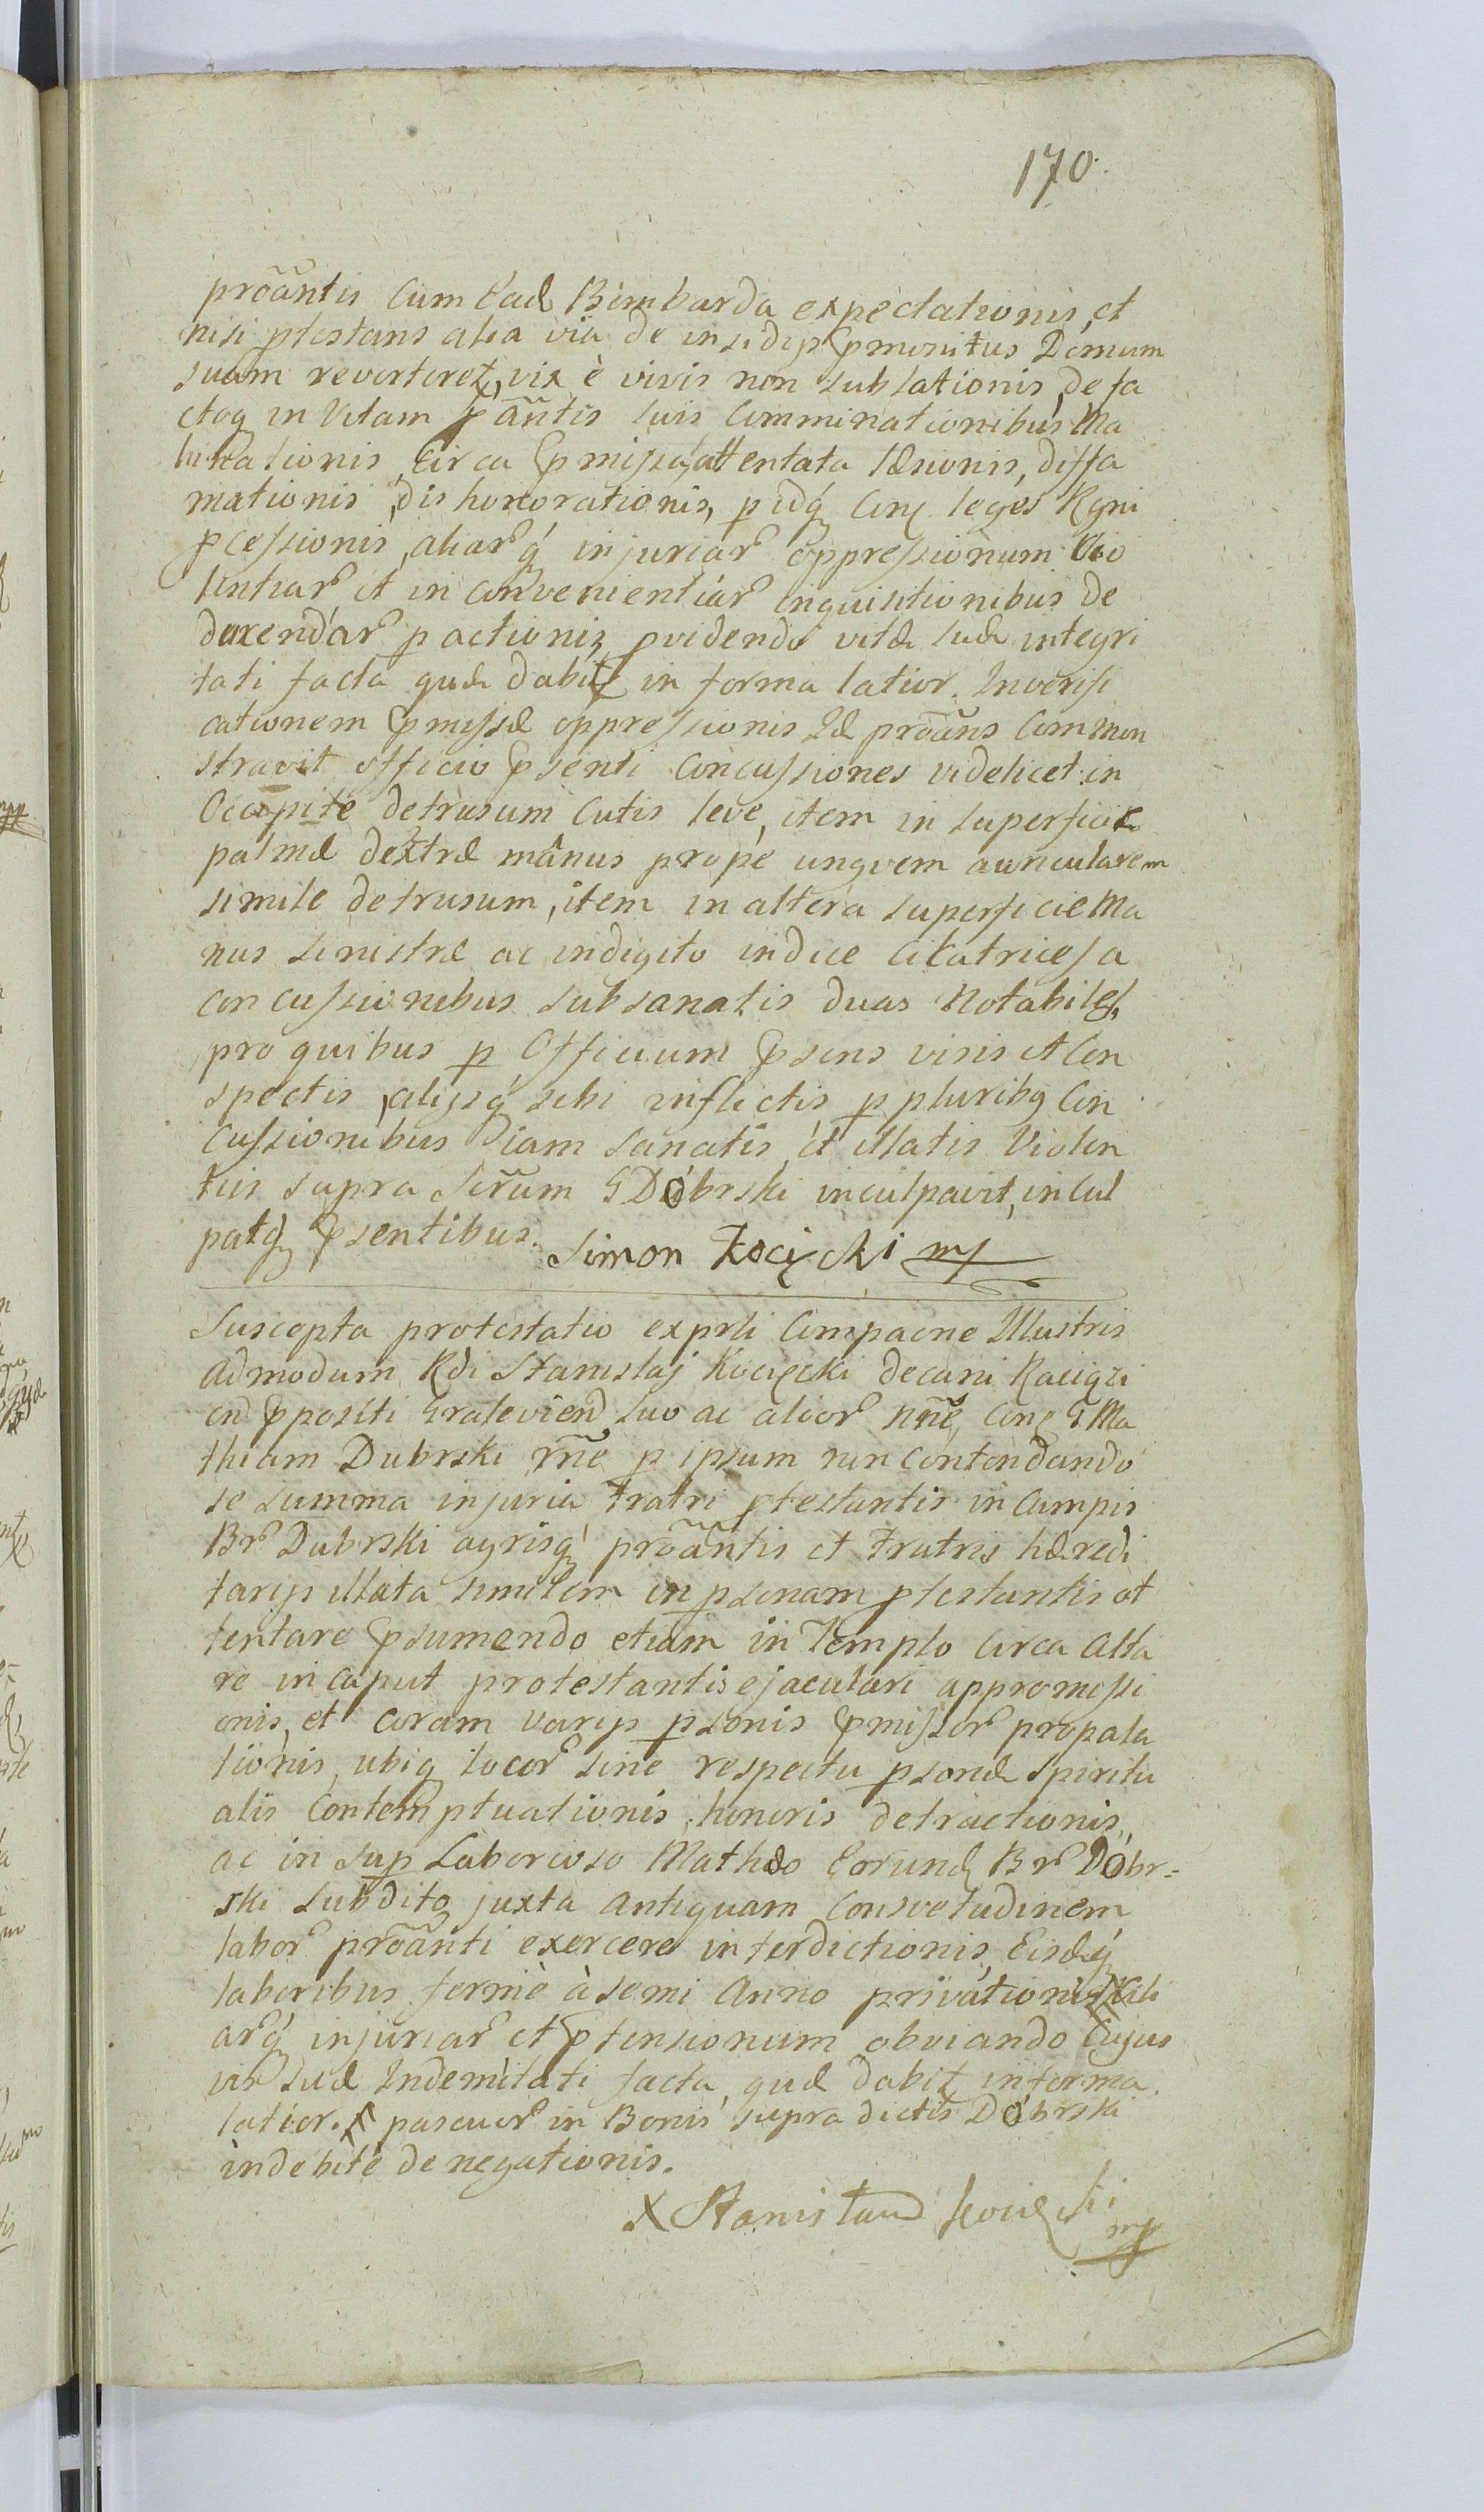 170.
prõãntis Cum Ead Bimbarda expectationis, et
nisi ptestans alia via de insidijs pmonitus Domum
suam reverteret, vix è vivis non sublationis, de fa
ctoq in Vitam pãntis suis Comminationibus Ma
hinationis, Circa pmissa, attentata læsionis, diffa
mationis, dishonorationis, pidq Con leges Rgni
pcessionis, aliarq injuriar oppressionum Vio
lentiar et inconvenientiar inquisitionibus de
ducendar pactionis, pvidendo vitæ suæ integri
tati facta quæ dabit in forma latior. In verifi
cationem pmissæ oppressionis Id prõãns Common
stravit officio psenti Concussiones videlicet in
Occipite detrusum Cutis leve, item in superficie
palmæ dextræ mânus propè ungvem auricularem
simile detrusum, item in altera superficie Ma
nus sinistræ ac in digito indice Cicatrices a
concussionibus subsanatis duas Notabiles,
pro quibus p Officium psens visis et Con
spectis, alijsq sibi inflictis p pluribq Con
cussionibus iam sanatis, et illatis Violen
tiis supra Scrum G Dóbrski inculpavit, incul
patq psentibus.
Simon Kocięcki mp
Suscepta protestatio exprli Compacne Illustris
Admodum Rdi Stanislaj Kocięcki decani Raciązi
en ppositi Gralevien suo ac alior nne, Con G Ma
thiam Dubrski rne p ipsum non Contondando
se summa injuria Fratri ptestantis in Campis
Br Dubrski agrisq prõãntis et Fratris hæredi
tarijs illata similem in psonam ptestantis at
tentare psumendo etiam in Templo Circa Alta
re in caput protestantis ejaculari appromissi
onis, et coram varijs psonis pmissor propala
tionis, ubiq locor sine respectu psonæ Spiritu
alis Contemptuationis, honoris detractionis,
ac in sup Laborioso Mathæo Eorund Br Dóbr=
ski subdito juxta Antiquam Consvetudinem
labor prõãnti exercere interdictionis, Eisdq
laboribus fermè à semi Anno privationis, Ali
arq injuriar et ptensionum obviando Cujus
vis suæ Indemitati facta, quæ dabit in forma
latior. # pascuor in Bonis supra dictis Dóbrski
indebitè denegationis.
X Stanisław Kocięcki
mp